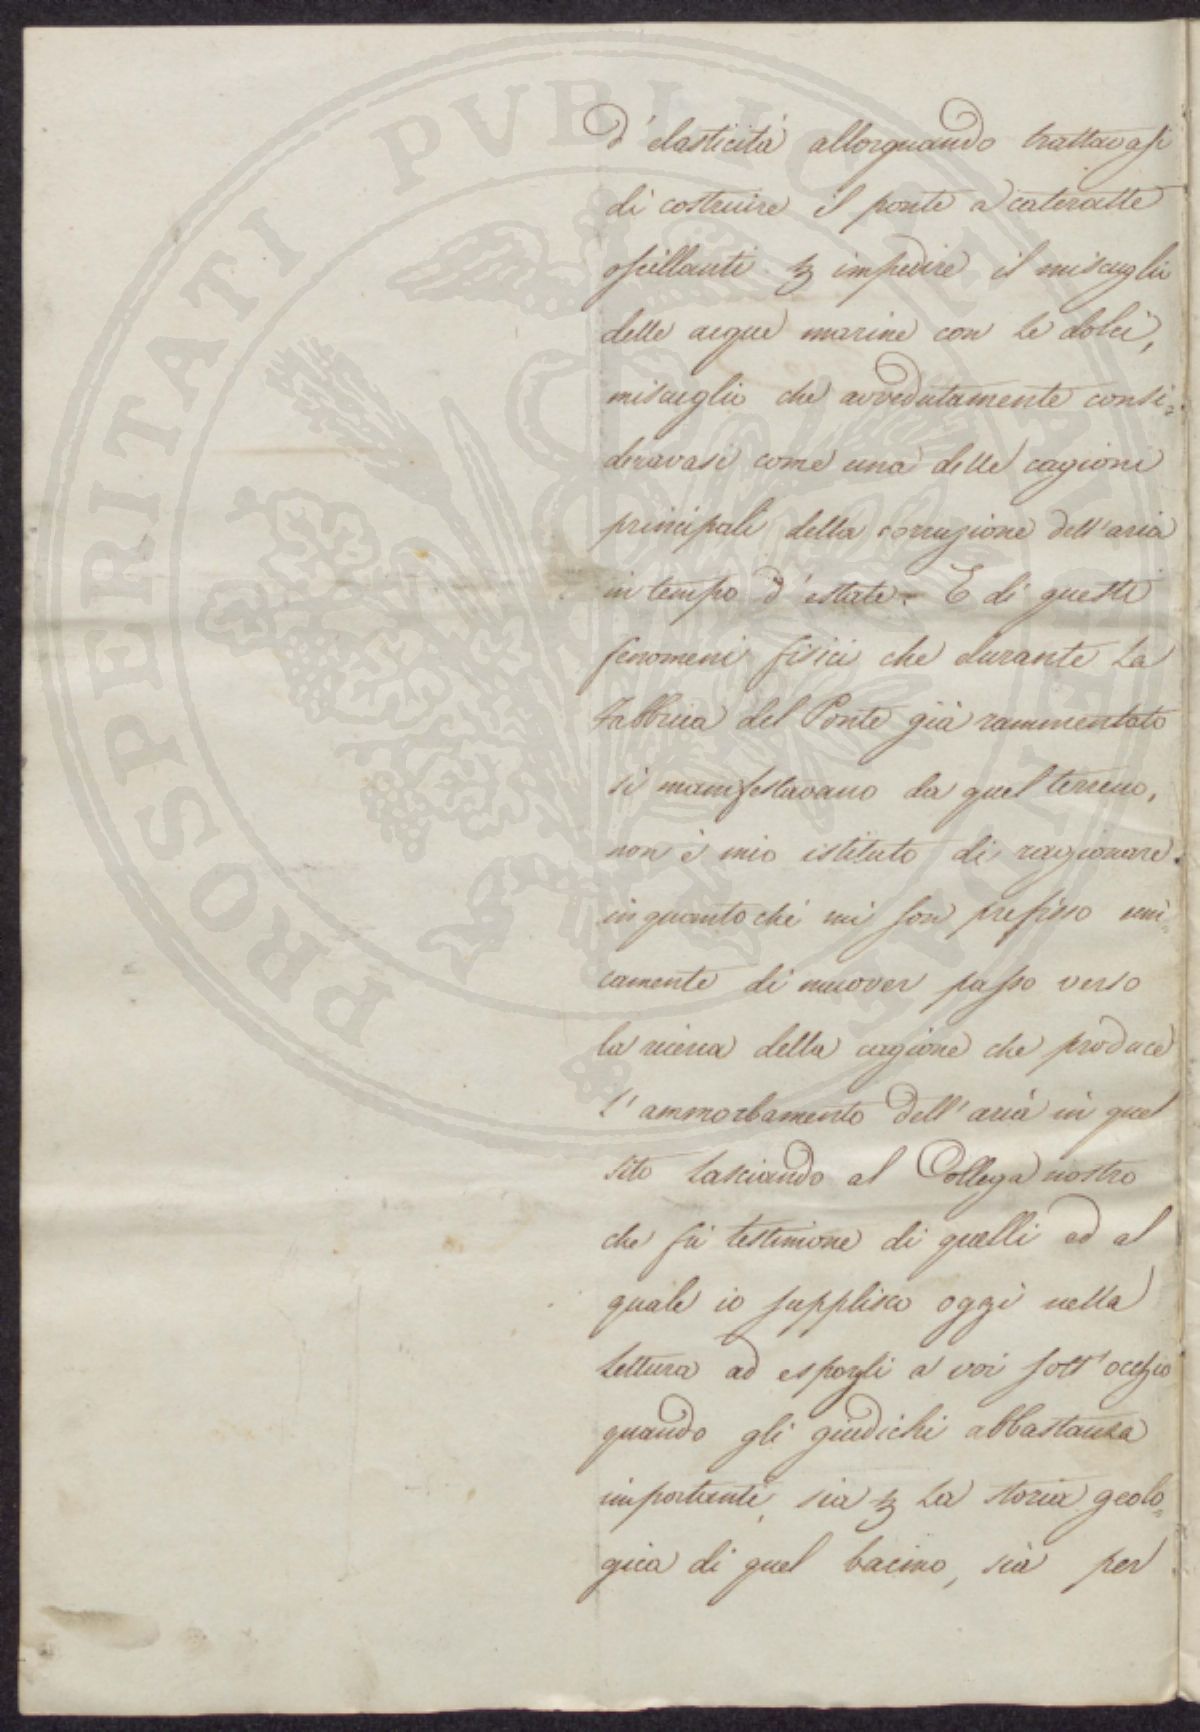 d'elasticità allorquando trattavasi
di costruire il ponte a cateratte
oscillanti per impedire il miscuglio
delle acque marine con le dolci,
miscuglio che avvedutamente consi=
deravasi come una delle cagioni
principali della corruzione dell'aria
in tempo d'estate. E di questi
fenomeni fisici che durante la
fabbrica del Ponte già rammentato
si manifestavano da quel terreno,
non è mio istituto di ragionare
in quanto che mi son prefisso uni=
camente di muover passo verso
la ricerca della cagione che produce
l'ammorbamento dell'aria in quel
sito lasciando al Collega nostro
che fù testimone di quelli ed al
quale io supplisco oggi nella
lettura ad esporli a voi sott'occhio
quando gli giudichi abbastanza
importanti, sia per la storia geolo=
gica di quel bacino, sia per
PROSPERITATI PVBLICAE AVGENDAE